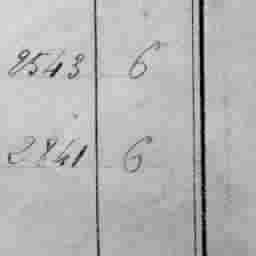 2543 6
2841 6